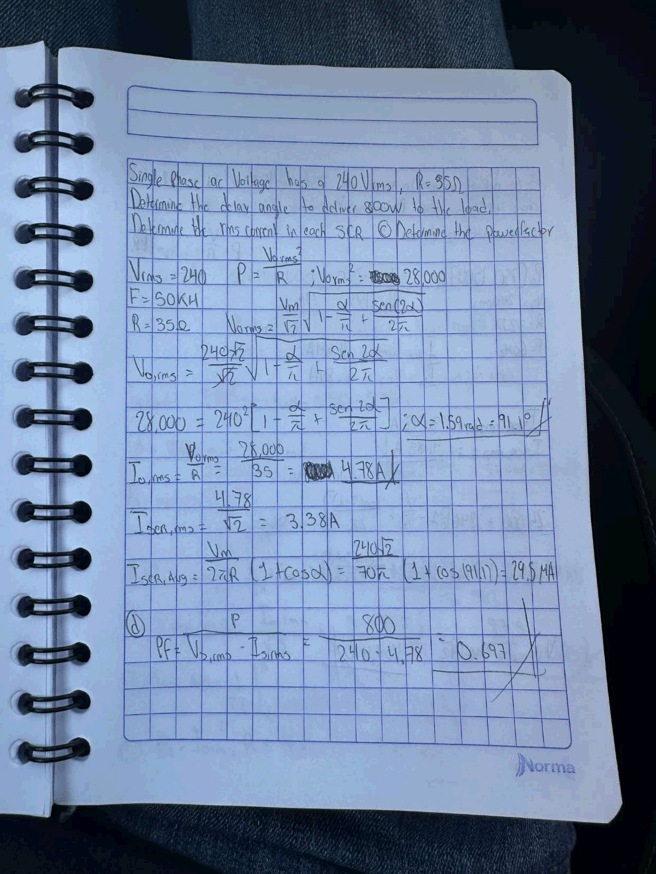 Single Phase ac Voltage has a 240 Vrms, R=35Ω
Determine the delay angle to deliver 800W to the load.
Determine the rms current in each SCR © Determine the powerfactor
Vrms = 240 P = Vo,rms² / R ; Vorms² = 28,000
F = 50KH
R = 35Ω Vorms = Vm/√2 √(1 - α/π + sen(2α)/2π)
Vo,rms = 240√2/√2 √(1 - α/π + sen 2α/2π)
28,000 = 240² [1 - α/π + sen 2α/2π] ; α = 1.59 rad = 91.1°
Io,rms = Vorms/R = 28,000/35 = 4.78A
Iscr,rms = 4.78/√2 = 3.38A
Iscr,Avg = Vm/2πR (1+cosα) = 240√2/70π (1+cos(91.1)) = 29.5 MA
ⓓ Pf = P / Vs,rms - Is,rms = 800 / 240 - 4.78 = 0.697
Norma